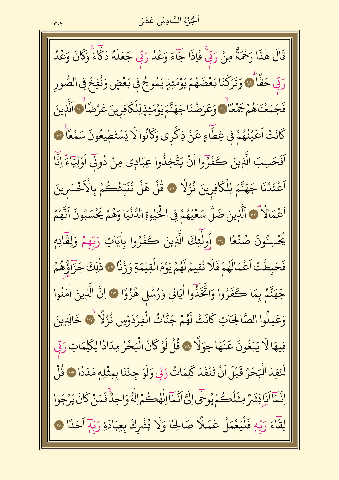 الجزء السادس عشر ٣٠٤
قَالَ هٰذَا رَحْمَةٌ مِنْ رَبِّيۚ فَاِذَا جَٓاءَ وَعْدُ رَبِّي جَعَلَهُ دَكَّٓاءَۚ وَكَانَ وَعْدُ
رَبِّي حَقًّاۜ ۝ وَتَرَكْنَا بَعْضَهُمْ يَوْمَئِذٍ يَمُوجُ فِي بَعْضٍ وَنُفِخَ فِي الصُّورِ
فَجَمَعْنَاهُمْ جَمْعًاۙ ۝ وَعَرَضْنَا جَهَنَّمَ يَوْمَئِذٍ لِلْكَافِرِينَ عَرْضًاۙ ۝ اَلَّذِينَ
كَانَتْ اَعْيُنُهُمْ فِي غِطَٓاءٍ عَنْ ذِكْرِي وَكَانُوا لَا يَسْتَطِيعُونَ سَمْعًا۟ ۝
اَفَحَسِبَ الَّذِينَ كَفَرُٓوا اَنْ يَتَّخِذُوا عِبَادِي مِنْ دُونِٓي اَوْلِيَٓاءَۜ اِنَّٓا
اَعْتَدْنَا جَهَنَّمَ لِلْكَافِرِينَ نُزُلًا ۝ قُلْ هَلْ نُنَبِّئُكُمْ بِالْاَخْسَرِينَ
اَعْمَالًاۜ ۝ اَلَّذِينَ ضَلَّ سَعْيُهُمْ فِي الْحَيٰوةِ الدُّنْيَا وَهُمْ يَحْسَبُونَ اَنَّهُمْ
يُحْسِنُونَ صُنْعًا ۝ اُو۬لٰٓئِكَ الَّذِينَ كَفَرُوا بِاٰيَاتِ رَبِّهِمْ وَلِقَٓائِهِ
فَحَبِطَتْ اَعْمَالُهُمْ فَلَا نُقِيمُ لَهُمْ يَوْمَ الْقِيٰمَةِ وَزْنًا ۝ ذٰلِكَ جَزَٓاؤُ۬هُمْ
جَهَنَّمُ بِمَا كَفَرُوا وَاتَّخَذُٓوا اٰيَاتِي وَرُسُلِي هُزُوًا ۝ اِنَّ الَّذِينَ اٰمَنُوا
وَعَمِلُوا الصَّالِحَاتِ كَانَتْ لَهُمْ جَنَّاتُ الْفِرْدَوْسِ نُزُلًاۙ ۝ خَالِدِينَ
فِيهَا لَا يَبْغُونَ عَنْهَا حِوَلًا ۝ قُلْ لَوْ كَانَ الْبَحْرُ مِدَادًا لِكَلِمَاتِ رَبِّي
لَنَفِدَ الْبَحْرُ قَبْلَ اَنْ تَنْفَدَ كَلِمَاتُ رَبِّي وَلَوْ جِئْنَا بِمِثْلِهِ مَدَدًا ۝ قُلْ
اِنَّمَٓا اَنَا۬ بَشَرٌ مِثْلُكُمْ يُوحٰٓى اِلَيَّ اَنَّمَٓا اِلٰهُكُمْ اِلٰهٌ وَاحِدٌۚ فَمَنْ كَانَ يَرْجُوا
لِقَٓاءَ رَبِّهِ فَلْيَعْمَلْ عَمَلًا صَالِحًا وَلَا يُشْرِكْ بِعِبَادَةِ رَبِّهِٓ اَحَدًا ۝